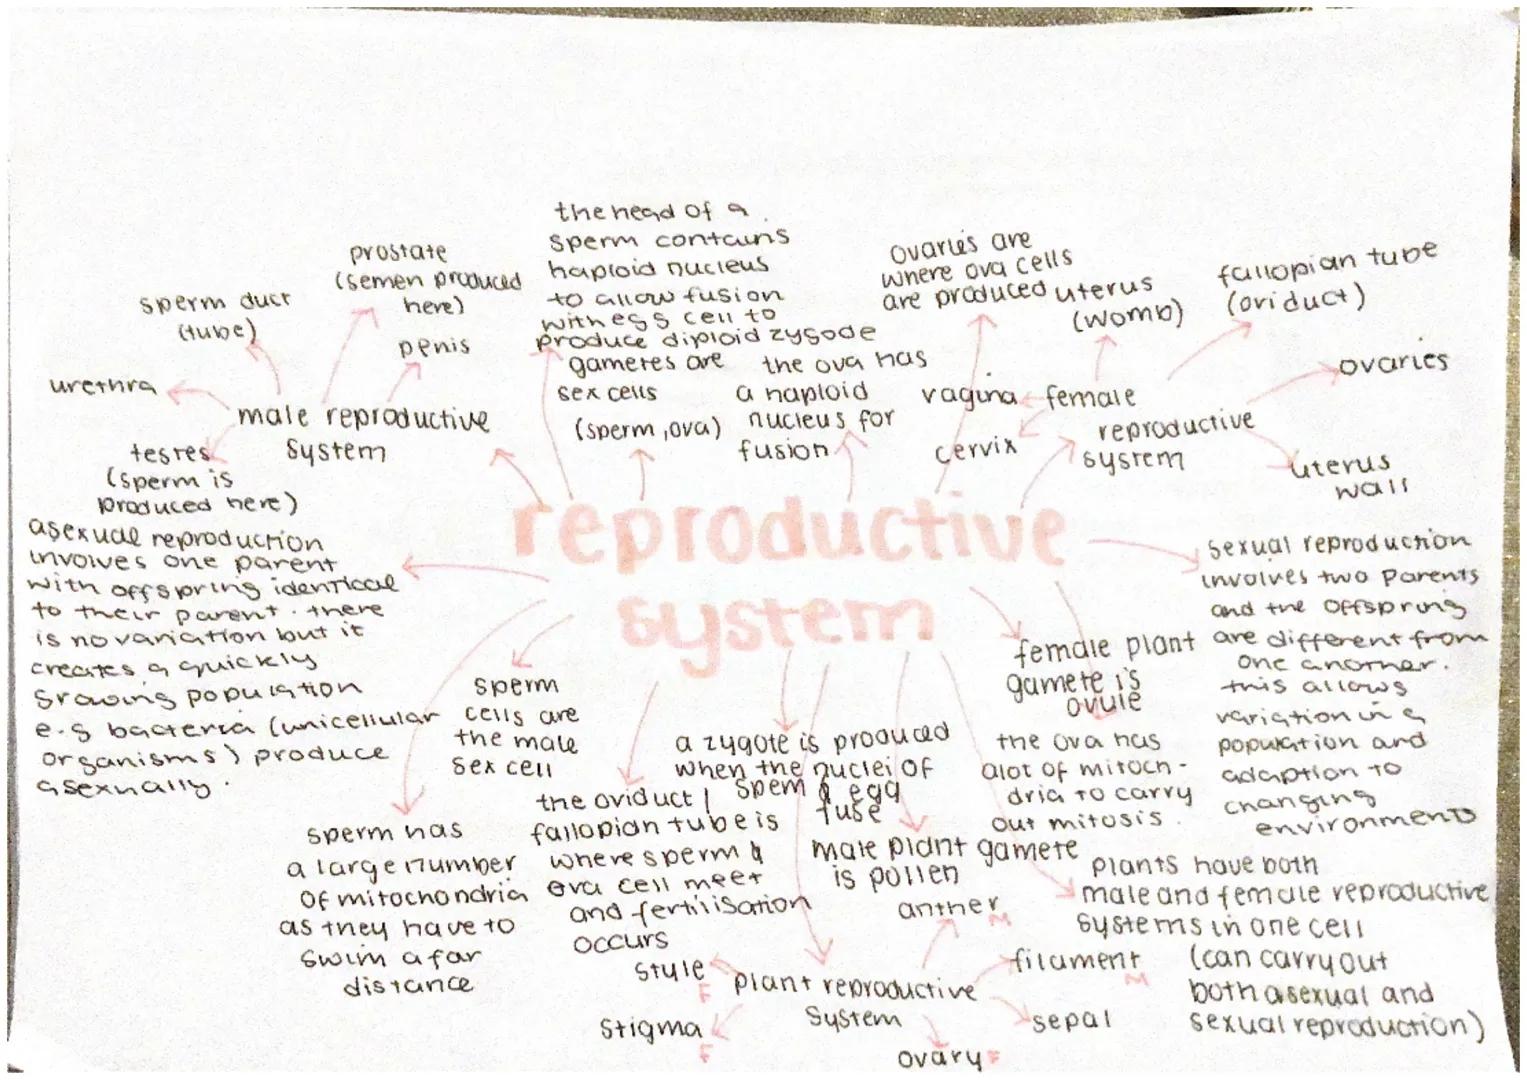 the head of a
sperm contains
haploid nucleus
to allow fusion
with egg cell to
produce diploid zygode
prostate
(semen produced
here)
sperm duct
(tube)
penis
urethra
male reproductive
system
testes
(sperm is
produced here)
gametes are
sex cells
(sperm, ova)
the ova has
a haploid
nucleus for
fusion
ovaries are
where ova cells
are produced
uterus
(womb)
fallopian tube
(oviduct)
ovaries
vagina
female
reproductive
system
cervix
uterus
wall
reproductive
system
asexual reproduction
involves one parent
with offspring identical
to their parent. there
is no variation but it
creates a quickly
growing population
e.g bacteria (unicellular
organisms) produce
asexually.
sexual reproduction
involves two parents
and the offspring
are different from
one another.
this allows
variation in a
population and
adaption to
changing
environments
female plant
gamete is
ovule
sperm
cells are
the male
sex cell
a zygote is produced
when the nuclei of
sperm & egg
fuse
the ova has
alot of mitoch-
dria to carry
out mitosis.
sperm has
a large number
of mitochondria
as they have to
swim a far
distance
the oviduct /
fallopian tube is
where sperm &
ova cell meet
and fertilisation
occurs
male plant gamete
is pollen
plants have both
male and female reproductive
systems in one cell
(can carry out
both asexual and
sexual reproduction)
anther
M
filament
M
style
F
plant reproductive
system
stigma
F
sepal
ovary F